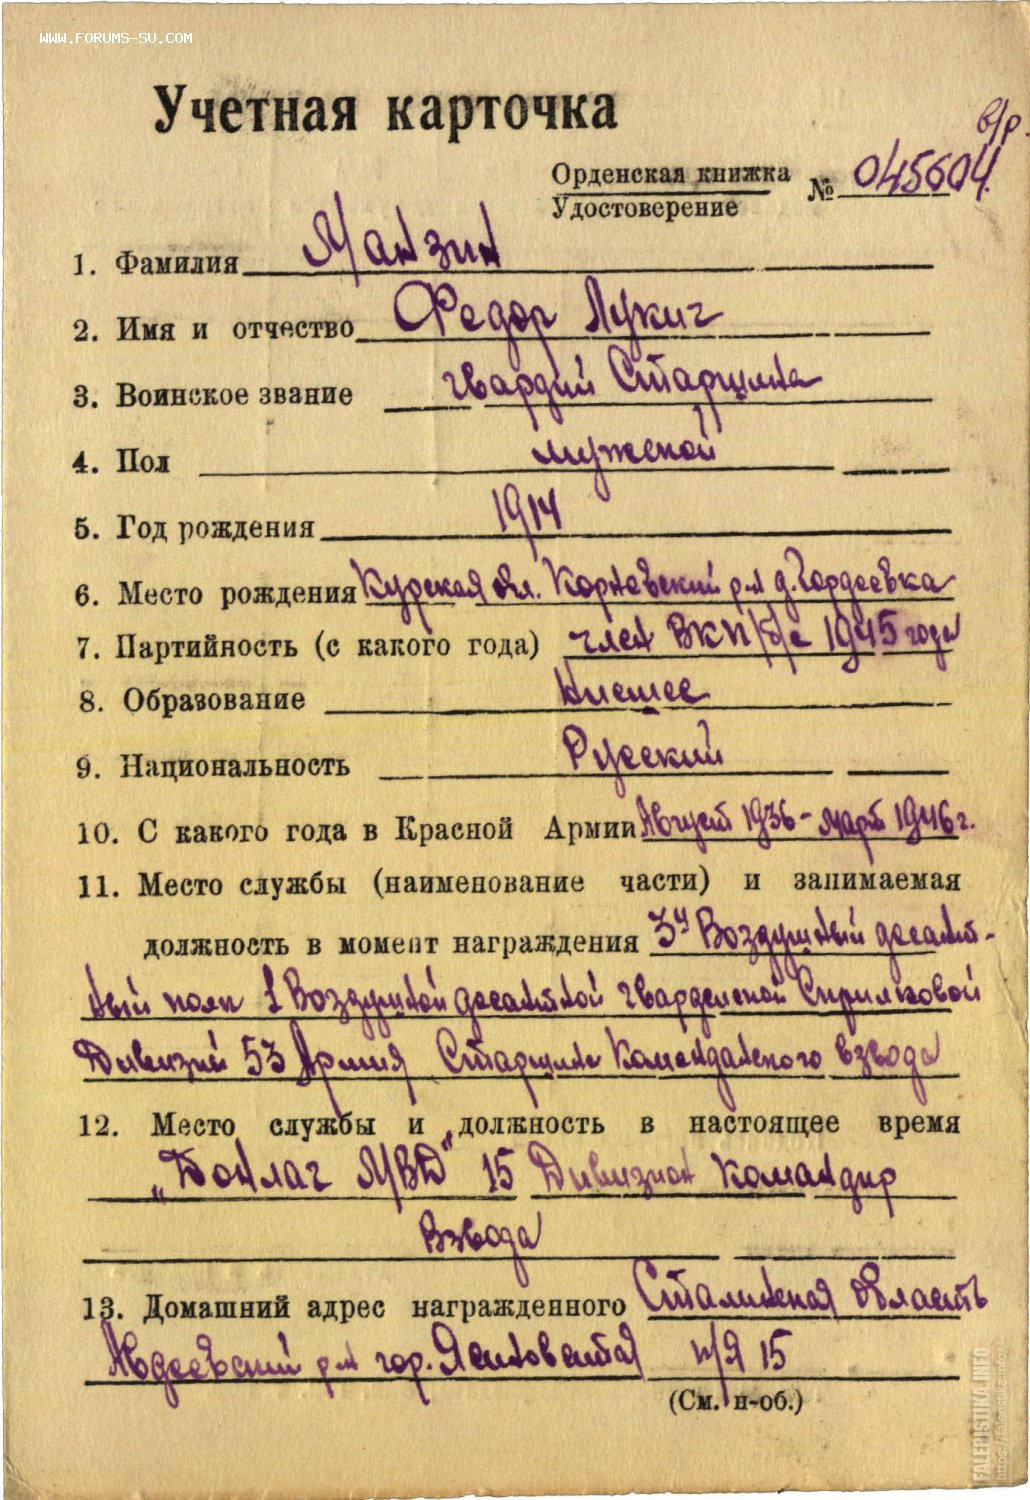 WWW.FORUMS-SU.COM
Учетная карточка
в/р.
Орденская книжка
Удостоверение
№ 045604.
1. Фамилия Манзин
2. Имя и отчество Федор Лукич
3. Воинское звание гвардий Старшина
4. Пол мужской
5. Год рождения 1914
6. Место рождения Курская обл. р-н д. Гордеевка
7. Партийность (с какого года) член ВКП/б/с 1945 года
8. Образование Нисшее
9. Национальность Русский
10. С какого года в Красной Армии Август 1936 - март 1946 г.
11. Место службы (наименование части) и занимаемая
должность в момент награждения 3й Воздушный десант-
ный полк 1 Воздушной десантной гвардейской
Дивизий 53 Армия Старшина взвода
12. Место службы и должность в настоящее время
„Донлаг МВД“ 15 Дивизион командир
Взвода
13. Домашний адрес награжденного Сталинская область
Авдеевский р-н гор. Ясиноватая п/я 15
(См. н-об.)
FALERISTIKA.INFO
https://faleristika.info